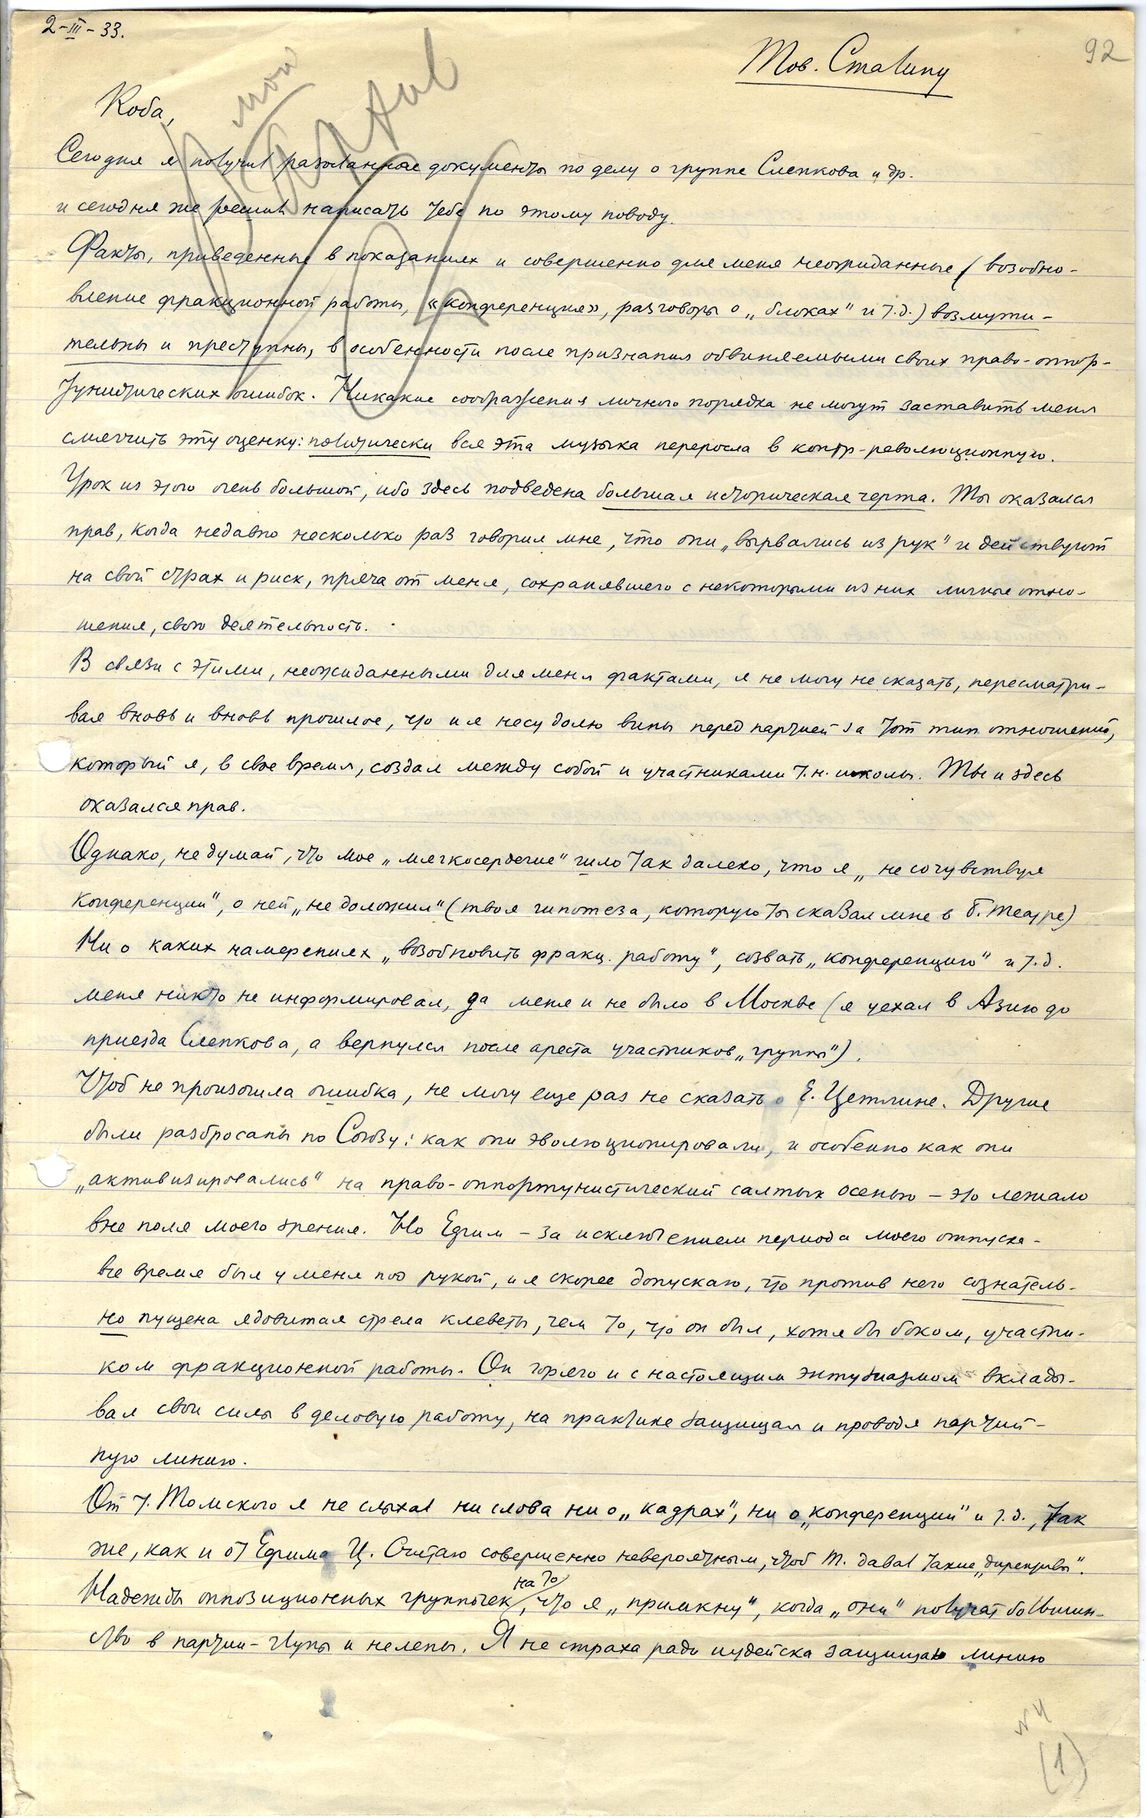 2-III-33.
92
Тов. Сталину
мой архив
Коба,
Сегодня я получил разосланные документы по делу о группе Слепкова и др.
и сегодня же решил написать тебе по этому поводу.
Факты, приведенные в показаниях и совершенно для меня неожиданные (возобно-
вление фракционной работы, «конференция», разговоры о „блоках" и т.д.) возмути-
тельны и преступны, в особенности после признания обвиняемыми своих право-оппор-
тунистических ошибок. Никакие соображения личного порядка не могут заставить меня
смягчить эту оценку: политически вся эта музыка переросла в контр-революционную.
Урок из этого очень большой, ибо здесь подведена большая историческая черта. Ты оказался
прав, когда недавно несколько раз говорил мне, что они „вырвались из рук" и действуют
на свой страх и риск, пряча от меня, сохранявшего с некоторыми из них личные отно-
шения, свою деятельность.
В связи с этими, неожиданными для меня фактами, я не могу не сказать, пересматри-
вая вновь и вновь прошлое, что и я несу долю вины перед партией за тот тип отношений,
который я, в свое время, создал между собой и участниками т.н. школы. Ты и здесь
оказался прав.
Однако, не думай, что мое „мягкосердечие" шло так далеко, что я „не сочувствуя
конференции", о ней „не доложил" (твоя гипотеза, которую ты сказал мне в Б. театре)
Ни о каких намерениях „возобновить фракц. работу", созвать „конференцию" и т.д.
меня никто не информировал, да меня и не было в Москве (я уехал в Азию до
приезда Слепкова, а вернулся после ареста участников „группы").
Чтоб не произошла ошибка, не могу еще раз не сказать о Е. Цетлине. Другие
были разбросаны по Союзу: как они эволюционировали, и особенно как они
„активизировались" на право-оппортунистический салтык осенью – это лежало
вне поля моего зрения. Но Ефим – за исключением периода моего отпуска –
все время был у меня под рукой, и я скорее допускаю, что против него сознатель-
но пущена ядовитая стрела клеветы, чем то, что он был, хотя бы боком, участни-
ком фракционной работы. Он горячо и с настоящим энтузиазмом вклады-
вал свои силы в деловую работу, на практике защищая и проводя партий-
ную линию.
От т. Томского я не слыхал ни слова ни о „кадрах", ни о „конференции" и т.д., так
же, как и от Ефима Ц. Считаю совершенно невероятным, чтоб Т. давал такие „директивы".
Надежды оппозиционных группочек на то, что я „примкну", когда „они" получат большин-
ство в партии – глупы и нелепы. Я не страха ради иудейска защищаю линию
N4
(1)